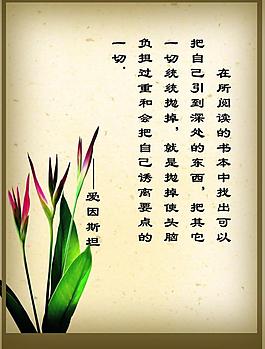 在所阅读的书本中找出可以
把自己引到深处的东西，把其它
一切统统抛掉，就是抛掉使头脑
负担过重和会把自己诱离要点的
一切．
——爱因斯坦